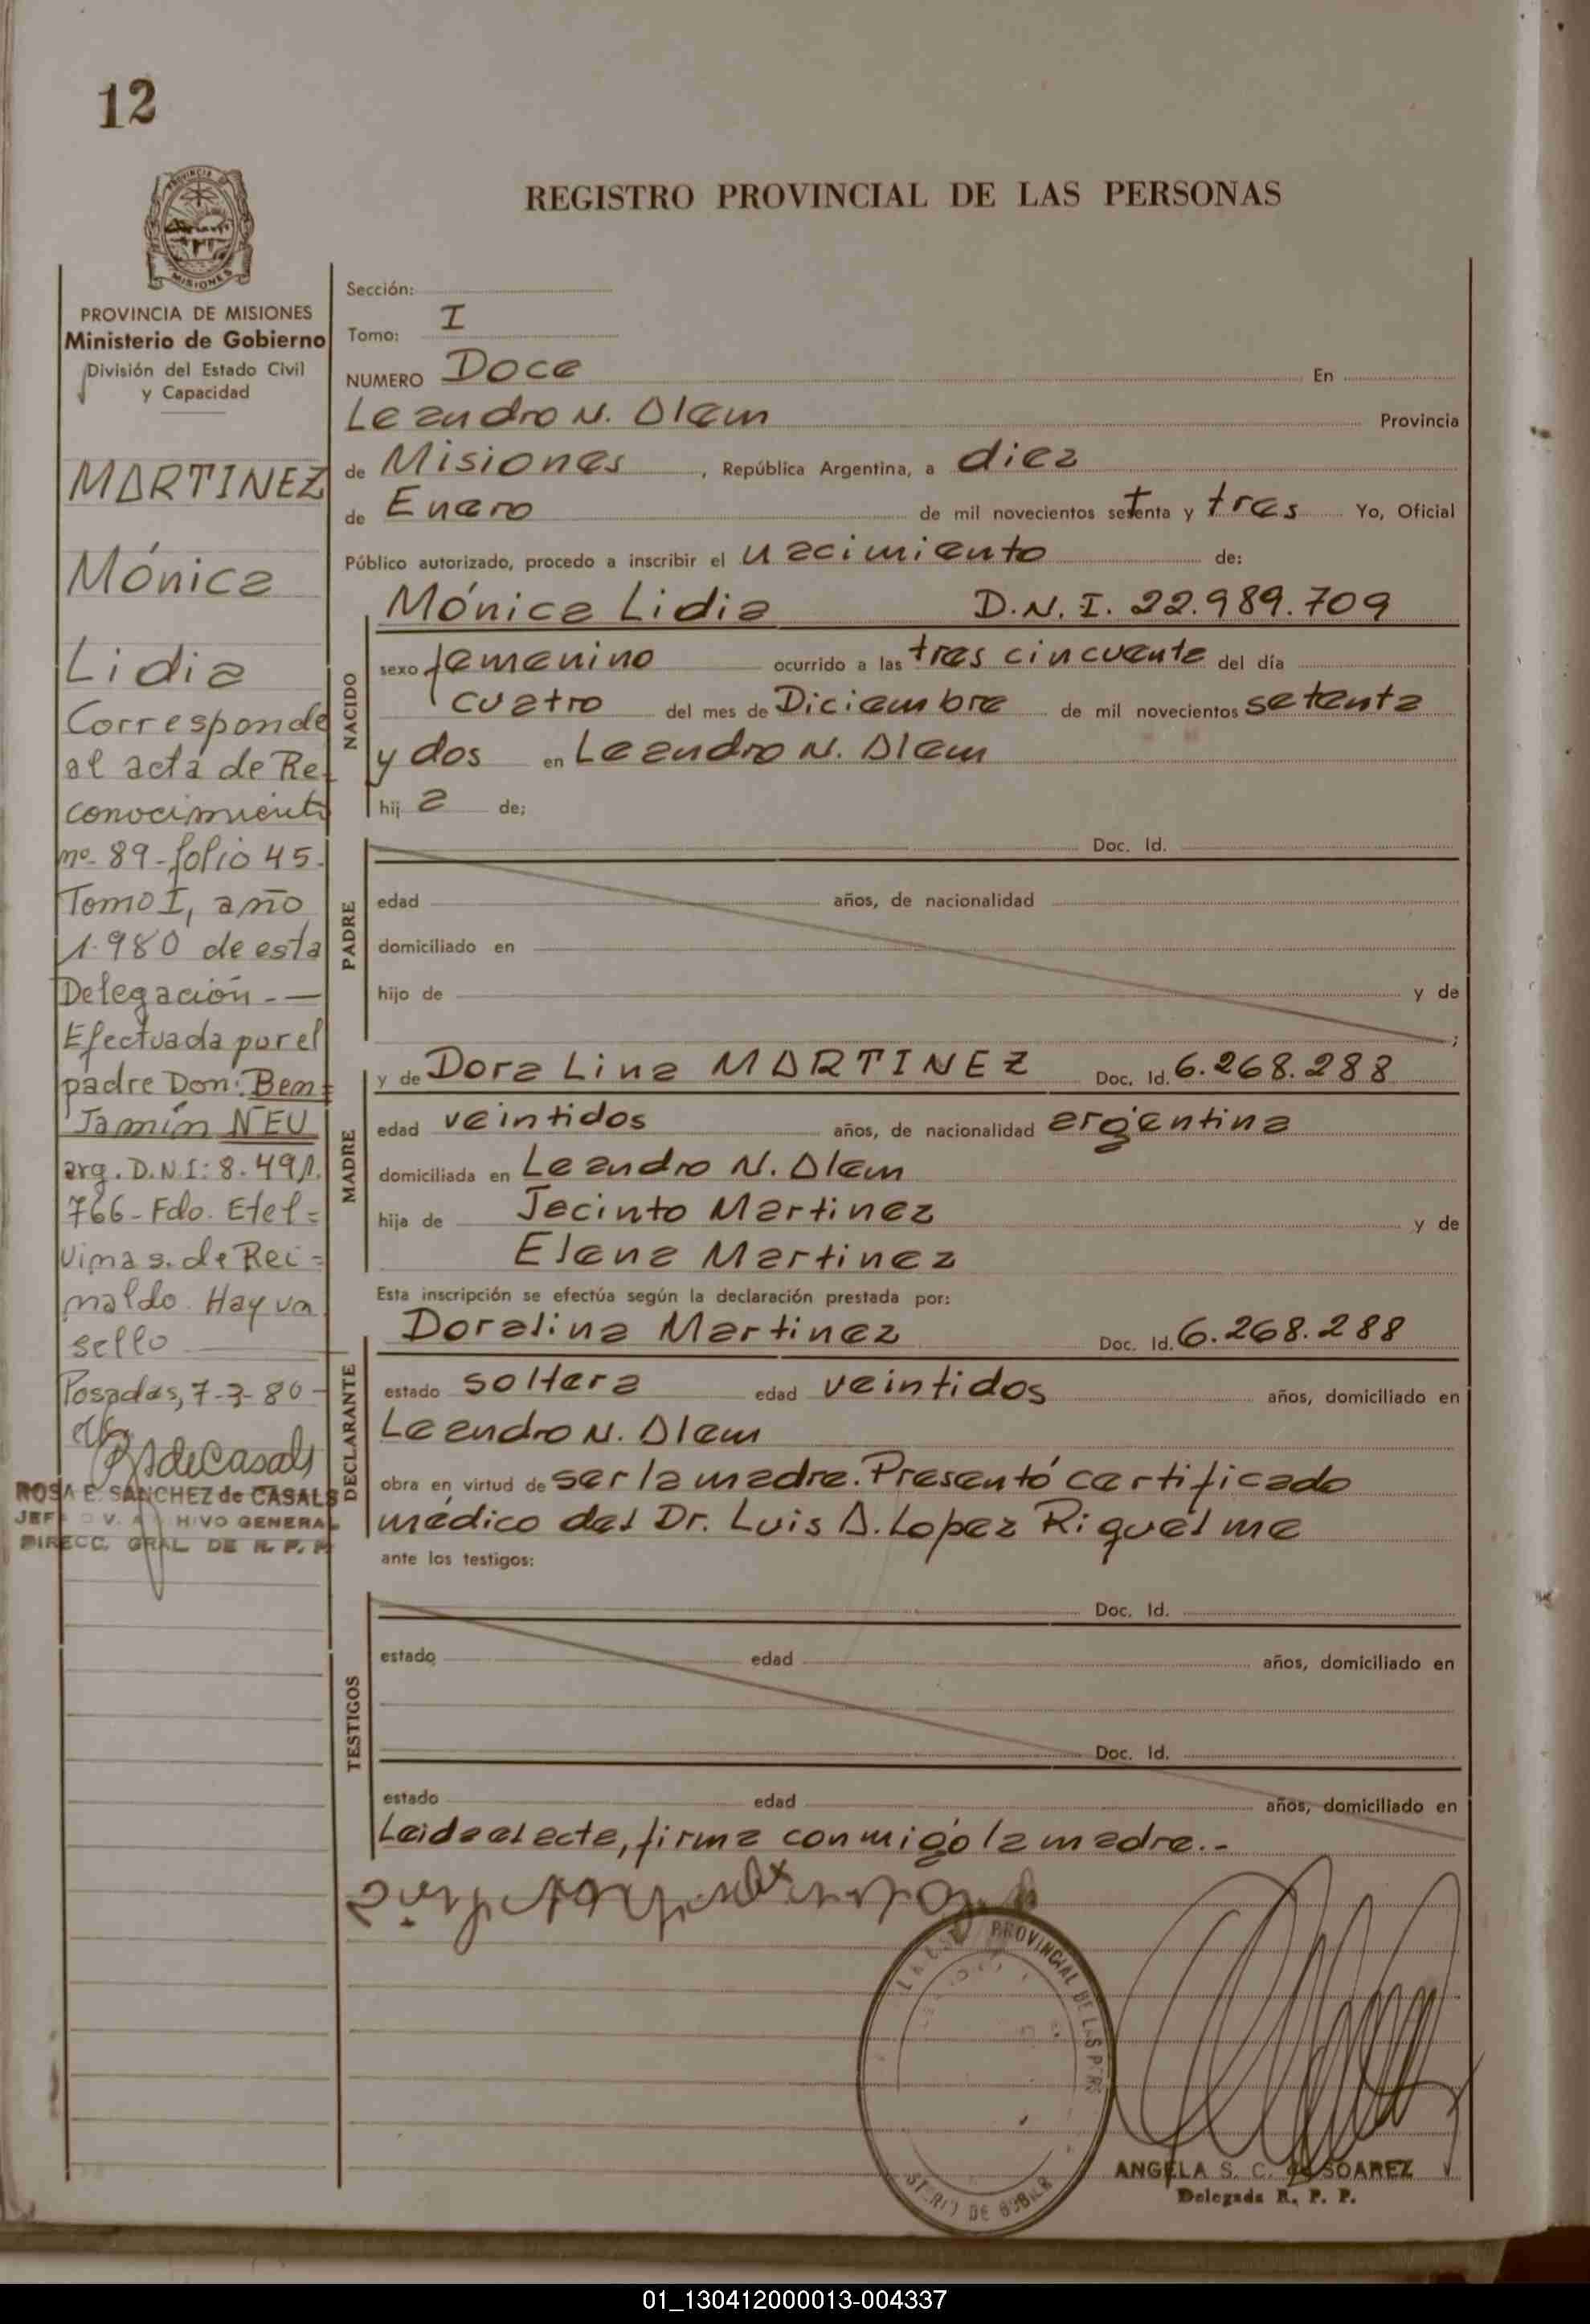 12
PROVINCIA
MISIONES
REGISTRO PROVINCIAL DE LAS PERSONAS
PROVINCIA DE MISIONES
Ministerio de Gobierno
División del Estado Civil
y Capacidad
MARTINEZ
Mónica
Lidia
Corresponde
al acta de Re-
conocimiento
nº 89-folio 45.
Tomo I, año
1.980 de esta
Delegación.-—
Efectuada por el
padre Don: Ben=
Jamín NEU
arg. D.N.I: 8.491.
766- Fdo. Etel=
vina s. de Rei=
naldo. Hay un
sello
Posadas, 7-3-80-
ROSA E. SANCHEZ de CASALS
JEF DV. A HIVO GENERAL
DIRECC. GRAL DE R. P. P.
Sección:
Tomo: I
NUMERO Doce En
Leandro N. Alem Provincia
de Misiones, República Argentina, a diez
de Enero de mil novecientos setenta y tres Yo, Oficial
Público autorizado, procedo a inscribir el nacimiento de:
NACIDO
Mónica Lidia D.N.I. 22.989.709
sexo femenino ocurrido a las tres cincuenta del día
cuatro del mes de Diciembre de mil novecientos setenta
y dos en Leandro N. Alem
hij a de;
PADRE
Doc. Id.
edad años, de nacionalidad
domiciliado en
hijo de y de
;
MADRE
y de Dora Lina MARTINEZ Doc. Id. 6.268.288
edad veintidos años, de nacionalidad argentina
domiciliada en Leandro N. Alem
hija de Jacinto Martinez y de
Elena Martinez
Esta inscripción se efectúa según la declaración prestada por:
DECLARANTE
Doralina Martinez Doc. Id. 6.268.288
estado soltera edad veintidos años, domiciliado en
Leandro N. Alem
obra en virtud de ser la madre. Presentó certificado
médico del Dr. Luis A. Lopez Riquelme
ante los testigos:
TESTIGOS
Doc. Id.
estado edad años, domiciliado en
Doc. Id.
estado edad años, domiciliado en
Leida el acta, firma conmigo la madre..-
PROVINCIAL DE LAS PERS
ANGELA S. C. de SOAREZ
Delegada R. P. P.
01_130412000013-004337